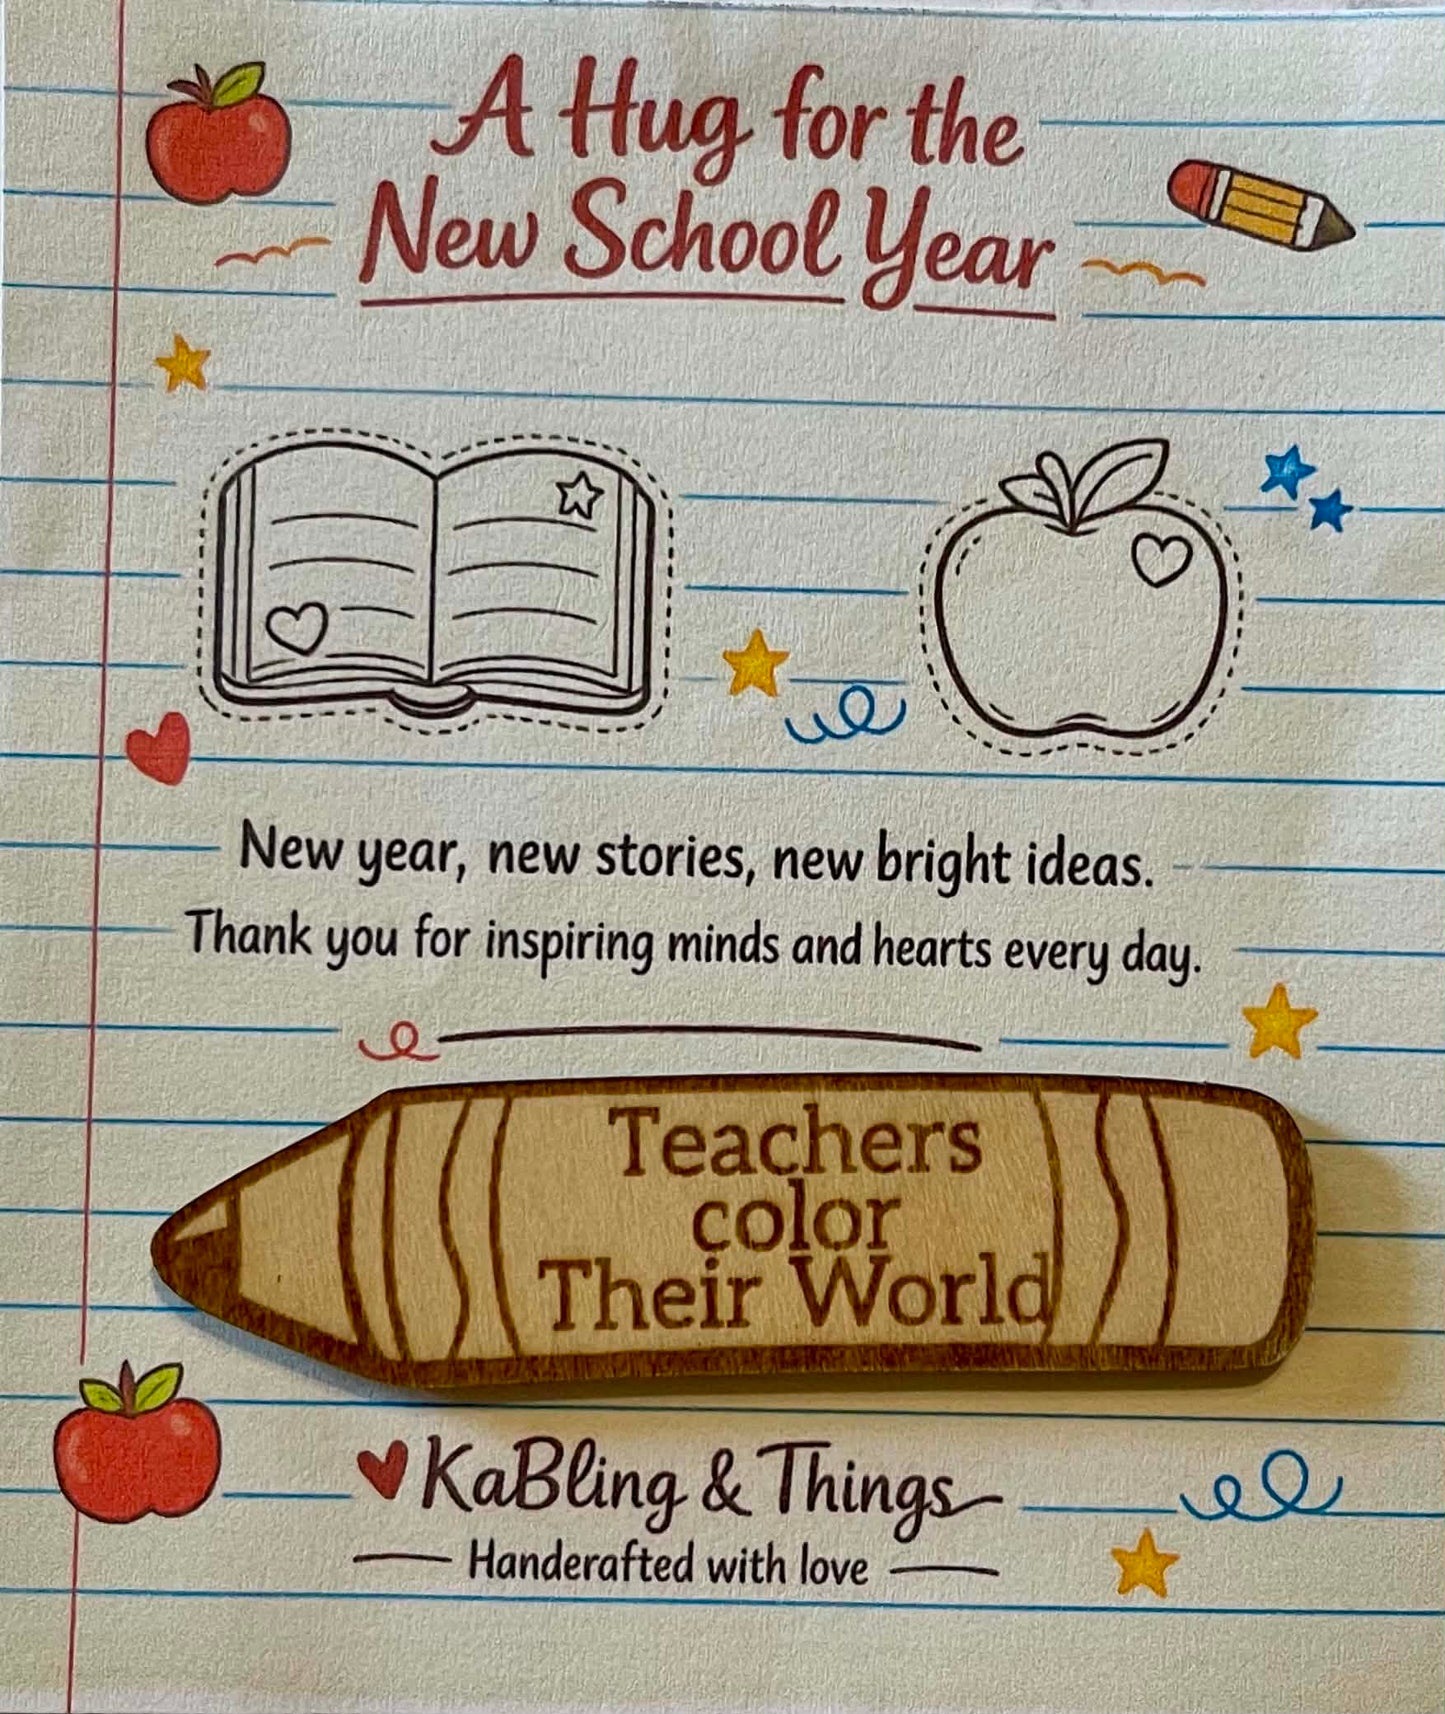 A Hug for the
New School Year
New year, new stories, new bright ideas.
Thank you for inspiring minds and hearts every day.
Teachers
color
Their World
KaBling & Things
Handerafted with love